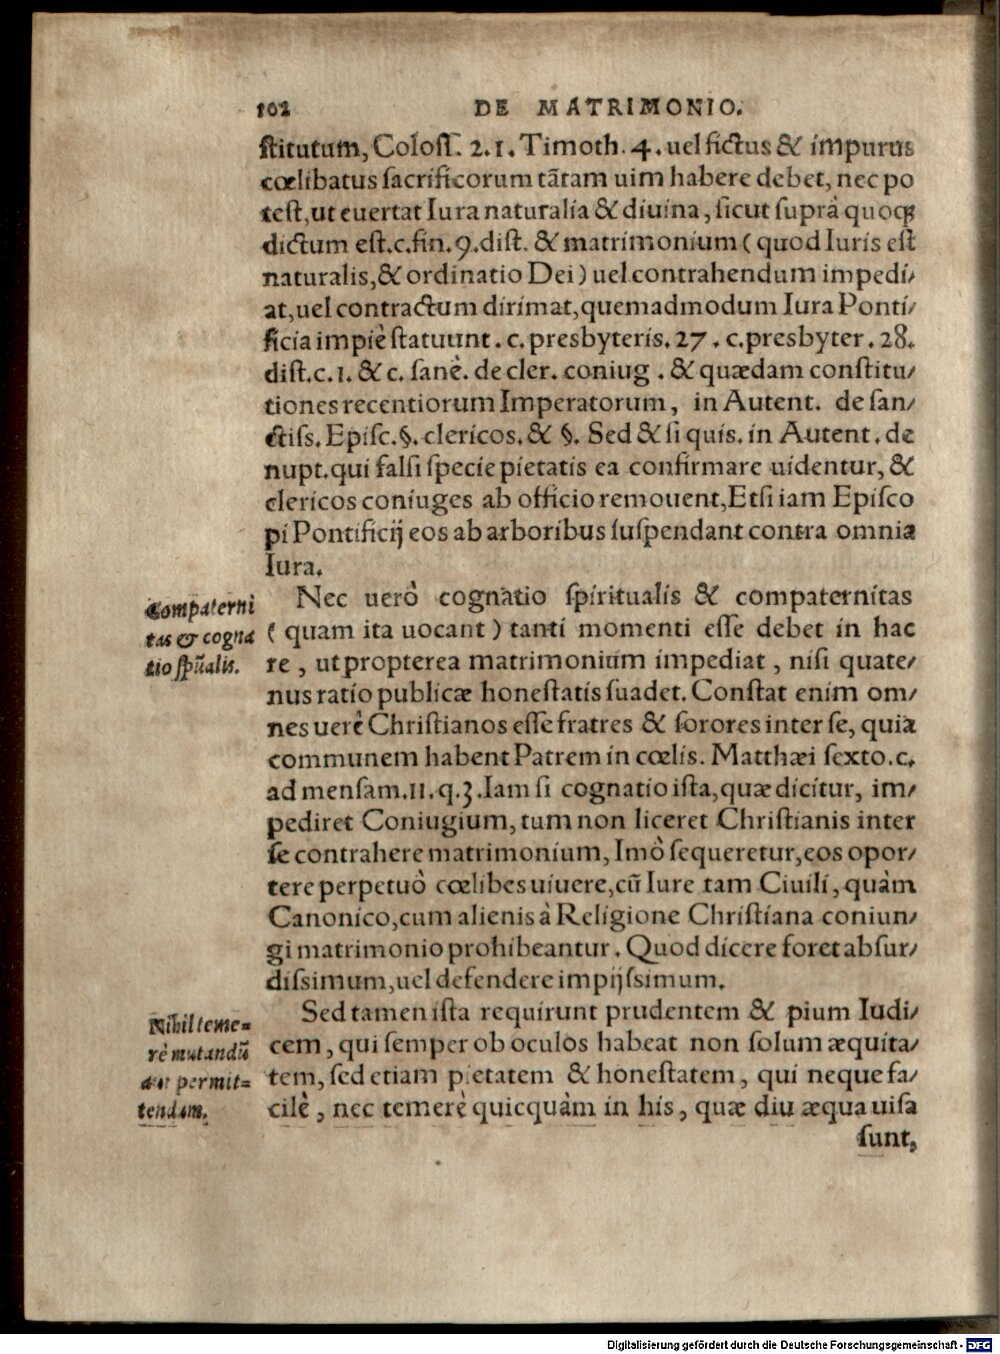 102 DE MATRIMONIO.
ſtitutum, Coloſſ. 2. 1. Timoth. 4. uel fictus & impurus
cœlibatus ſacrificorum tātam uim habere debet, nec po
teſt, ut euertat Iura naturalia & diuina, ſicut ſuprà quoqꝫ
dictum eſt. c. fin. 9. diſt. & matrimonium ( quod Iuris eſt
naturalis, & ordinatio Dei ) uel contrahendum impedi/
at, uel contractum dirimat, quemadmodum Iura Ponti/
ficia impiè ſtatuunt. c. presbyteris. 27. c. presbyter. 28.
diſt. c. 1. & c. ſanè. de cler. coniug. & quædam conſtitu/
tiones recentiorum Imperatorum, in Autent. de ſan/
ctiſs. Epiſc. §. clericos. & §. Sed & ſi quis. in Autent. de
nupt. qui falſi ſpecie pietatis ea confirmare uidentur, &
clericos coniuges ab officio remouent, Etſi iam Epiſco
pi Pontificij eos ab arboribus ſuſpendant contra omnia
Iura.
Compaterni
tas & cogna
tio ſpūalis.
Nec uerò cognatio ſpiritualis & compaternitas
( quam ita uocant ) tanti momenti eſſe debet in hac
re, ut propterea matrimonium impediat, niſi quate/
nus ratio publicæ honeſtatis ſuadet. Conſtat enim om/
nes uerè Chriſtianos eſſe fratres & ſorores inter ſe, quia
communem habent Patrem in cœlis. Matthæi ſexto. c.
ad menſam. 11. q. 3. Iam ſi cognatio iſta, quæ dicitur, im/
pediret Coniugium, tum non liceret Chriſtianis inter
ſe contrahere matrimonium, Imò ſequeretur, eos opor/
tere perpetuò cœlibes uiuere, cū Iure tam Ciuili, quàm
Canonico, cum alienis à Religione Chriſtiana coniun/
gi matrimonio prohibeantur. Quod dicere foret abſur/
diſsimum, uel defendere impijſsimum.
Nihil teme=
rè mutandū
aut permit=
tendum.
Sed tamen iſta requirunt prudentem & pium Iudi/
cem, qui ſemper ob oculos habeat non ſolum æquita/
tem, ſed etiam pietatem & honeſtatem, qui neque fa/
cilè, nec temerè quicquàm in his, quæ diu æqua uiſa
ſunt,
Digitalisierung gefördert durch die Deutsche Forschungsgemeinschaft - DFG